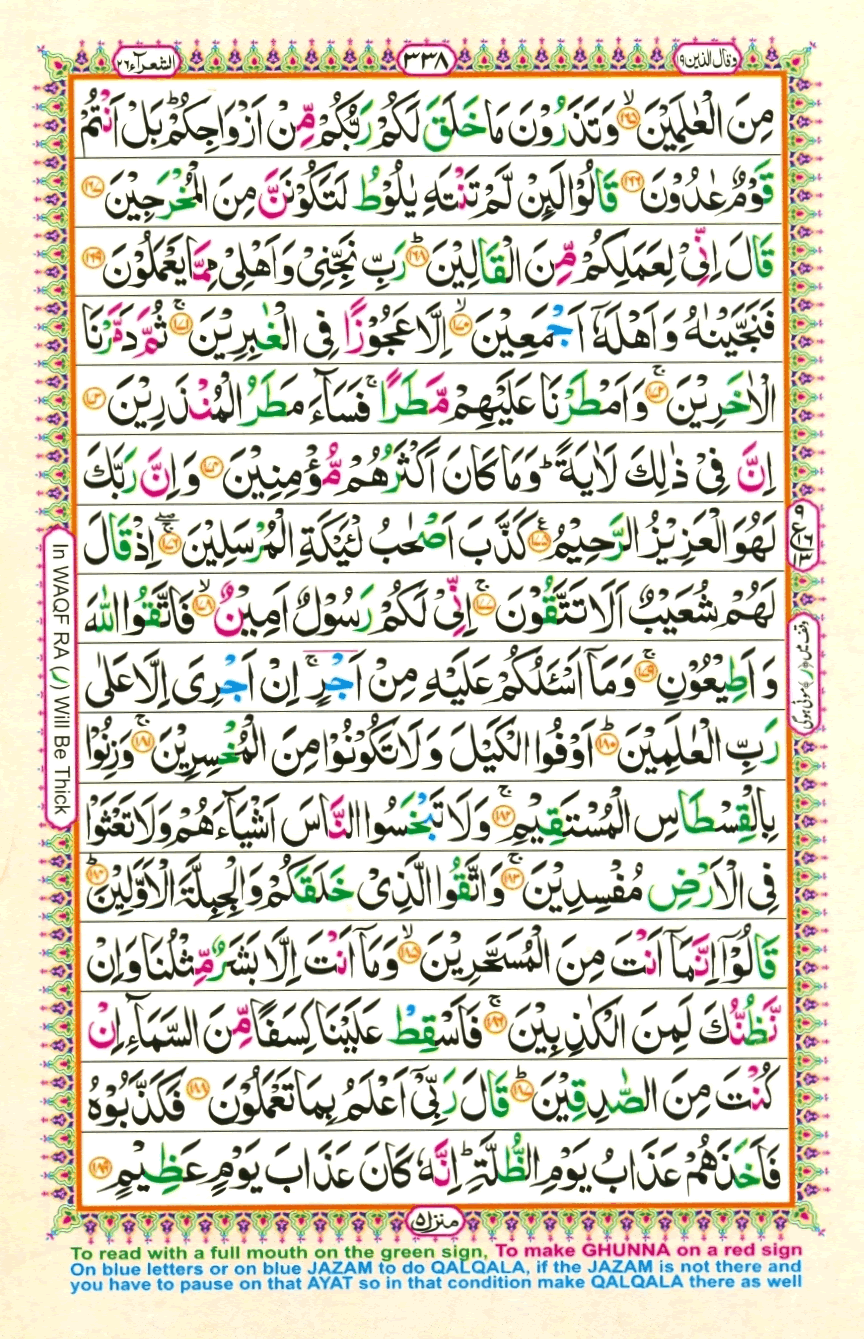 وقال الذين ١٩
٣٣٨
الشعرآء ٢٦
مِنَ الْعٰلَمِيْنَ ﴿١٦٥﴾ۙ وَتَذَرُوْنَ مَا خَلَقَ لَكُمْ رَبُّكُمْ مِّنْ اَزْوَاجِكُمْ ؕ بَلْ اَنْتُمْ
قَوْمٌ عٰدُوْنَ ﴿١٦٦﴾ قَالُوْا لَئِنْ لَّمْ تَنْتَهِ يٰلُوْطُ لَتَكُوْنَنَّ مِنَ الْمُخْرَجِيْنَ ﴿١٦٧﴾
قَالَ اِنِّيْ لِعَمَلِكُمْ مِّنَ الْقَالِيْنَ ﴿١٦٨﴾ؕ رَبِّ نَجِّنِيْ وَاَهْلِيْ مِمَّا يَعْمَلُوْنَ ﴿١٦٩﴾
فَنَجَّيْنٰهُ وَاَهْلَهٗٓ اَجْمَعِيْنَ ﴿١٧٠﴾ۙ اِلَّا عَجُوْزًا فِي الْغٰبِرِيْنَ ﴿١٧١﴾ۚ ثُمَّ دَمَّرْنَا
الْاٰخَرِيْنَ ﴿١٧٢﴾ۚ وَاَمْطَرْنَا عَلَيْهِمْ مَّطَرًا ۚ فَسَآءَ مَطَرُ الْمُنْذَرِيْنَ ﴿١٧٣﴾
اِنَّ فِيْ ذٰلِكَ لَاٰيَةً ؕ وَمَا كَانَ اَكْثَرُهُمْ مُّؤْمِنِيْنَ ﴿١٧٤﴾ وَاِنَّ رَبَّكَ
لَهُوَ الْعَزِيْزُ الرَّحِيْمُ ﴿١٧٥﴾ۧ كَذَّبَ اَصْحٰبُ لْـَٔيْكَةِ الْمُرْسَلِيْنَ ﴿١٧٦﴾ۚۖ اِذْ قَالَ
لَهُمْ شُعَيْبٌ اَلَا تَتَّقُوْنَ ﴿١٧٧﴾ۚ اِنِّيْ لَكُمْ رَسُوْلٌ اَمِيْنٌ ﴿١٧٨﴾ۙ فَاتَّقُوا اللّٰهَ
وَاَطِيْعُوْنِ ﴿١٧٩﴾ۚ وَمَآ اَسْـَٔلُكُمْ عَلَيْهِ مِنْ اَجْرٍ ۚ اِنْ اَجْرِيَ اِلَّا عَلٰى
رَبِّ الْعٰلَمِيْنَ ﴿١٨٠﴾ؕ اَوْفُوا الْكَيْلَ وَلَا تَكُوْنُوْا مِنَ الْمُخْسِرِيْنَ ﴿١٨١﴾ۚ وَزِنُوْا
بِالْقِسْطَاسِ الْمُسْتَقِيْمِ ﴿١٨٢﴾ۚ وَلَا تَبْخَسُوا النَّاسَ اَشْيَآءَهُمْ وَلَا تَعْثَوْا
فِي الْاَرْضِ مُفْسِدِيْنَ ﴿١٨٣﴾ۚ وَاتَّقُوا الَّذِيْ خَلَقَكُمْ وَالْجِبِلَّةَ الْاَوَّلِيْنَ ﴿١٨٤﴾ؕ
قَالُوْٓا اِنَّمَآ اَنْتَ مِنَ الْمُسَحَّرِيْنَ ﴿١٨٥﴾ۙ وَمَآ اَنْتَ اِلَّا بَشَرٌ مِّثْلُنَا وَاِنْ
نَّظُنُّكَ لَمِنَ الْكٰذِبِيْنَ ﴿١٨٦﴾ۚ فَاَسْقِطْ عَلَيْنَا كِسَفًا مِّنَ السَّمَآءِ اِنْ
كُنْتَ مِنَ الصّٰدِقِيْنَ ﴿١٨٧﴾ؕ قَالَ رَبِّيْٓ اَعْلَمُ بِمَا تَعْمَلُوْنَ ﴿١٨٨﴾ فَكَذَّبُوْهُ
فَاَخَذَهُمْ عَذَابُ يَوْمِ الظُّلَّةِ ؕ اِنَّهٗ كَانَ عَذَابَ يَوْمٍ عَظِيْمٍ ﴿١٨٩﴾
In WAQF RA (ر) Will Be Thick
منزل ٥
To read with a full mouth on the green sign, To make GHUNNA on a red sign
On blue letters or on blue JAZAM to do QALQALA, if the JAZAM is not there and
you have to pause on that AYAT so in that condition make QALQALA there as well